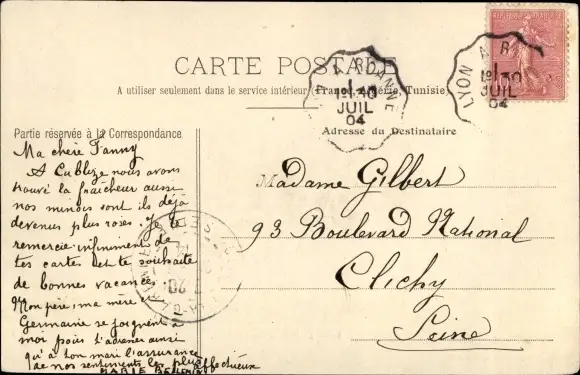 CARTE POSTALE
A utiliser seulement dans le service intérieur (France, Algérie, Tunisie)
Partie réservée à la Correspondance
Adresse du Destinataire
LYON A R
1º 30
JUIL
04
A ROANNE
1º 30
JUIL
04
Ma chère Fanny
A Cublize nous avons
trouvé la fraîcheur aussi
nos minois sont ils déjà
devenus plus roses. Je te
remercie infiniment de
tes cartes et te souhaite
de bonnes vacances
Mon père, ma mère et
Germaine se joignent à
moi pour t'adresser ainsi
qu'à ton mari l'assurance
de nos sentiments les plus affectueux
MARIE
Madame Gilbert
93 Boulevard National
Clichy
Seine